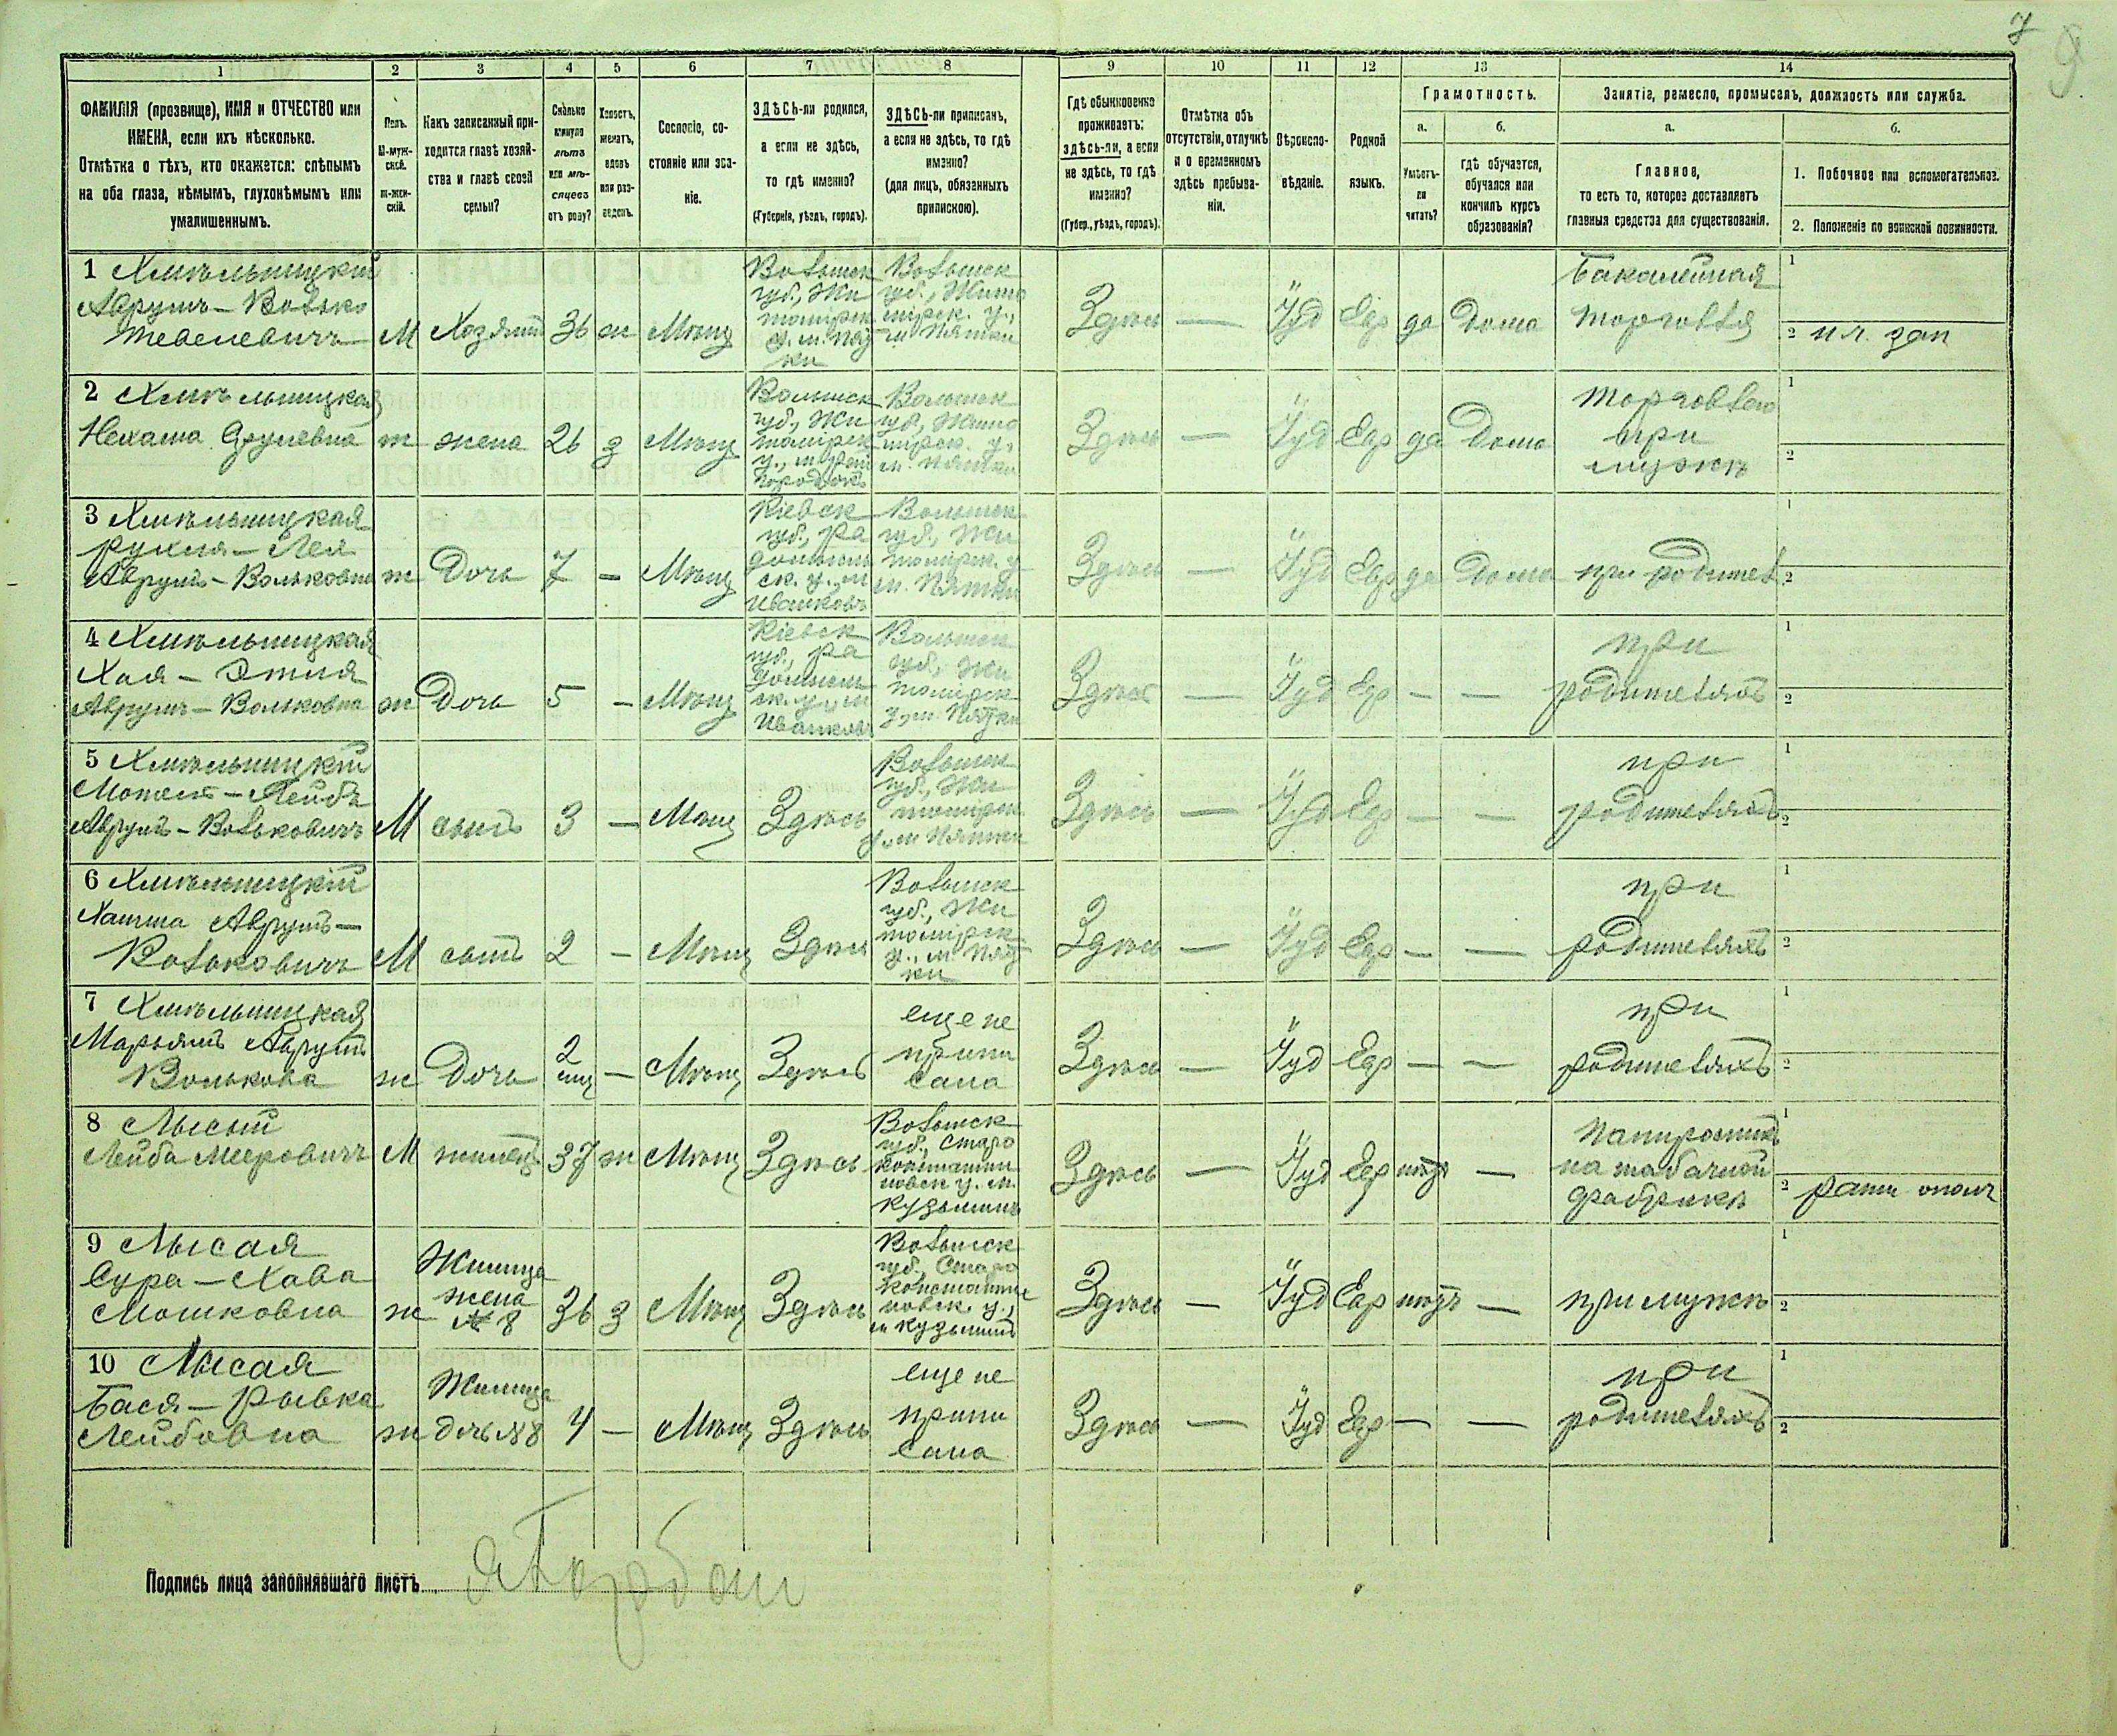 7
9
1 2 3 4 5 6 7 8 9 10 11 12 13 14
ФАМИЛІЯ (прозвище), ИМЯ и ОТЧЕСТВО или
ИМЕНА, если ихъ нѣсколько.
Отмѣтка о тѣхъ, кто окажется: слѣпымъ
на оба глаза, нѣмымъ, глухонѣмымъ или
умалишеннымъ.
Полъ.
М-муж-
ской.
ж-жен-
скій.
Какъ записанный при-
ходится главѣ хозяй-
ства и главѣ своей
семьи?
Сколько
минуло
лѣтъ
или мѣ-
сяцевъ
отъ роду?
Холостъ,
женатъ,
вдовъ
или раз-
веденъ.
Сословіе, со-
стояніе или зва-
ніе.
ЗДѢСЬ-ли родился,
а если не здѣсь,
то гдѣ именно?
(Губернія, уѣздъ, городъ).
ЗДѢСЬ-ли приписанъ,
а если не здѣсь, то гдѣ
именно?
(для лицъ, обязанныхъ
припискою).
Гдѣ обыкновенно
проживаетъ:
здѣсь-ли, а если
не здѣсь, то гдѣ
именно?
(Губер., уѣздъ, городъ).
Отмѣтка объ
отсутствіи, отлучкѣ
и о временномъ
здѣсь пребыва-
ніи.
Вѣроиспо-
вѣданіе.
Родной
языкъ.
Грамотность.
а.
б.
Умѣетъ-
ли
читать?
гдѣ обучается,
обучался или
кончилъ курсъ
образованія?
Занятіе, ремесло, промыселъ, должность или служба.
а.
б.
Главное,
то есть то, которое доставляетъ
главныя средства для существованія.
1. Побочное или вспомогательное.
2. Положеніе по воинской повинности.
1 Хмѣльницкій
Аврумъ-Волько
Тевелевичъ
М
Хозяинъ
36
ж
Мѣщ
Волынск
губ., Жи
томірск
у. м. Пят
ки
Волынск
губ., Жито
мірск. у.,
м Пятки
Здѣсь
—
Іуд
Евр
да
Дома
Бакалейная
торговля
1
2 ил. зап
2 Хмѣльницкая
Нехама
ж
жена
26
з
Мѣщ
Волынск
губ., Жи
томірск
у., м Рай
городокъ
Волынск
губ., Жито
мірск. у,
м. Пятки
Здѣсь
—
Іуд
Евр
да
Дома
торговлею
при
мужѣ
1
2
3 Хмѣльницкая
Рухля-Лея
Аврумъ-Вольковна
ж
Дочь
7
—
Мѣщ
Кіевск
губ., Ра
домысль
ск. у., м
Иванковъ
Волынск
губ., Жи
томірск. у
м. Пятки
Здѣсь
—
Іуд
Евр
да
Дома
при родител
1
2
4 Хмѣльницкая
Хая-Этля
Аврумъ-Вольковна
ж
Дочь
5
—
Мѣщ
Кіевск
губ., Ра
домысль
ск. у., м
Иванковъ
Волынск
губ., Жи
томірск
у, м. Пятки
Здѣсь
—
Іуд
Евр
—
—
при
родителяхъ
1
2
5 Хмѣльницкій
Мотель-Лейбъ
Аврумъ-Вольковичъ
М
сынъ
3
—
Мѣщ
Здѣсь
Волынск
губ., Жи
томірск
у, м Пятки
Здѣсь
—
Іуд
Евр
—
—
при
родителяхъ
1
2
6 Хмѣльницкій
Аврумъ-
Вольковичъ
М
сынъ
2
—
Мѣщ
Здѣсь
Волынск
губ., Жи
томірск
у., м Пят
ки
Здѣсь
—
Іуд
Евр
—
—
при
родителяхъ
1
2
7 Хмѣльницкая
Марьямъ Аврумъ
Волькова
ж
Дочь
2
мц
—
Мѣщ
Здѣсь
еще не
припи
сана
Здѣсь
—
Іуд
Евр
—
—
при
родителяхъ
1
2
8 Лысый
Лейба Мееровичъ
М
жилецъ
37
ж
Мѣщ
Здѣсь
Волынск
губ, Старо
константи
новск у. м.
Кузьминъ
Здѣсь
—
Іуд
Евр
нѣтъ
—
Папиросникъ
на табачной
фабрикѣ
1
2 ратн ополч
9 Лысая
Сура-Хава
Мошковна
ж
Жилица
жена
№ 8
36
з
Мѣщ
Здѣсь
Волынск
губ., Старо
константи
новск. у.,
м Кузьминъ
Здѣсь
—
Іуд
Евр
нѣтъ
—
при мужѣ
1
2
10 Лысая
Бася-Рывка
Лейбовна
ж
Жилица
дочь №8
4
—
Мѣщ
Здѣсь
еще не
припи
сана
Здѣсь
—
Іуд
Евр
—
—
при
родителяхъ
1
2
Подпись лица заполнявшаго листъ